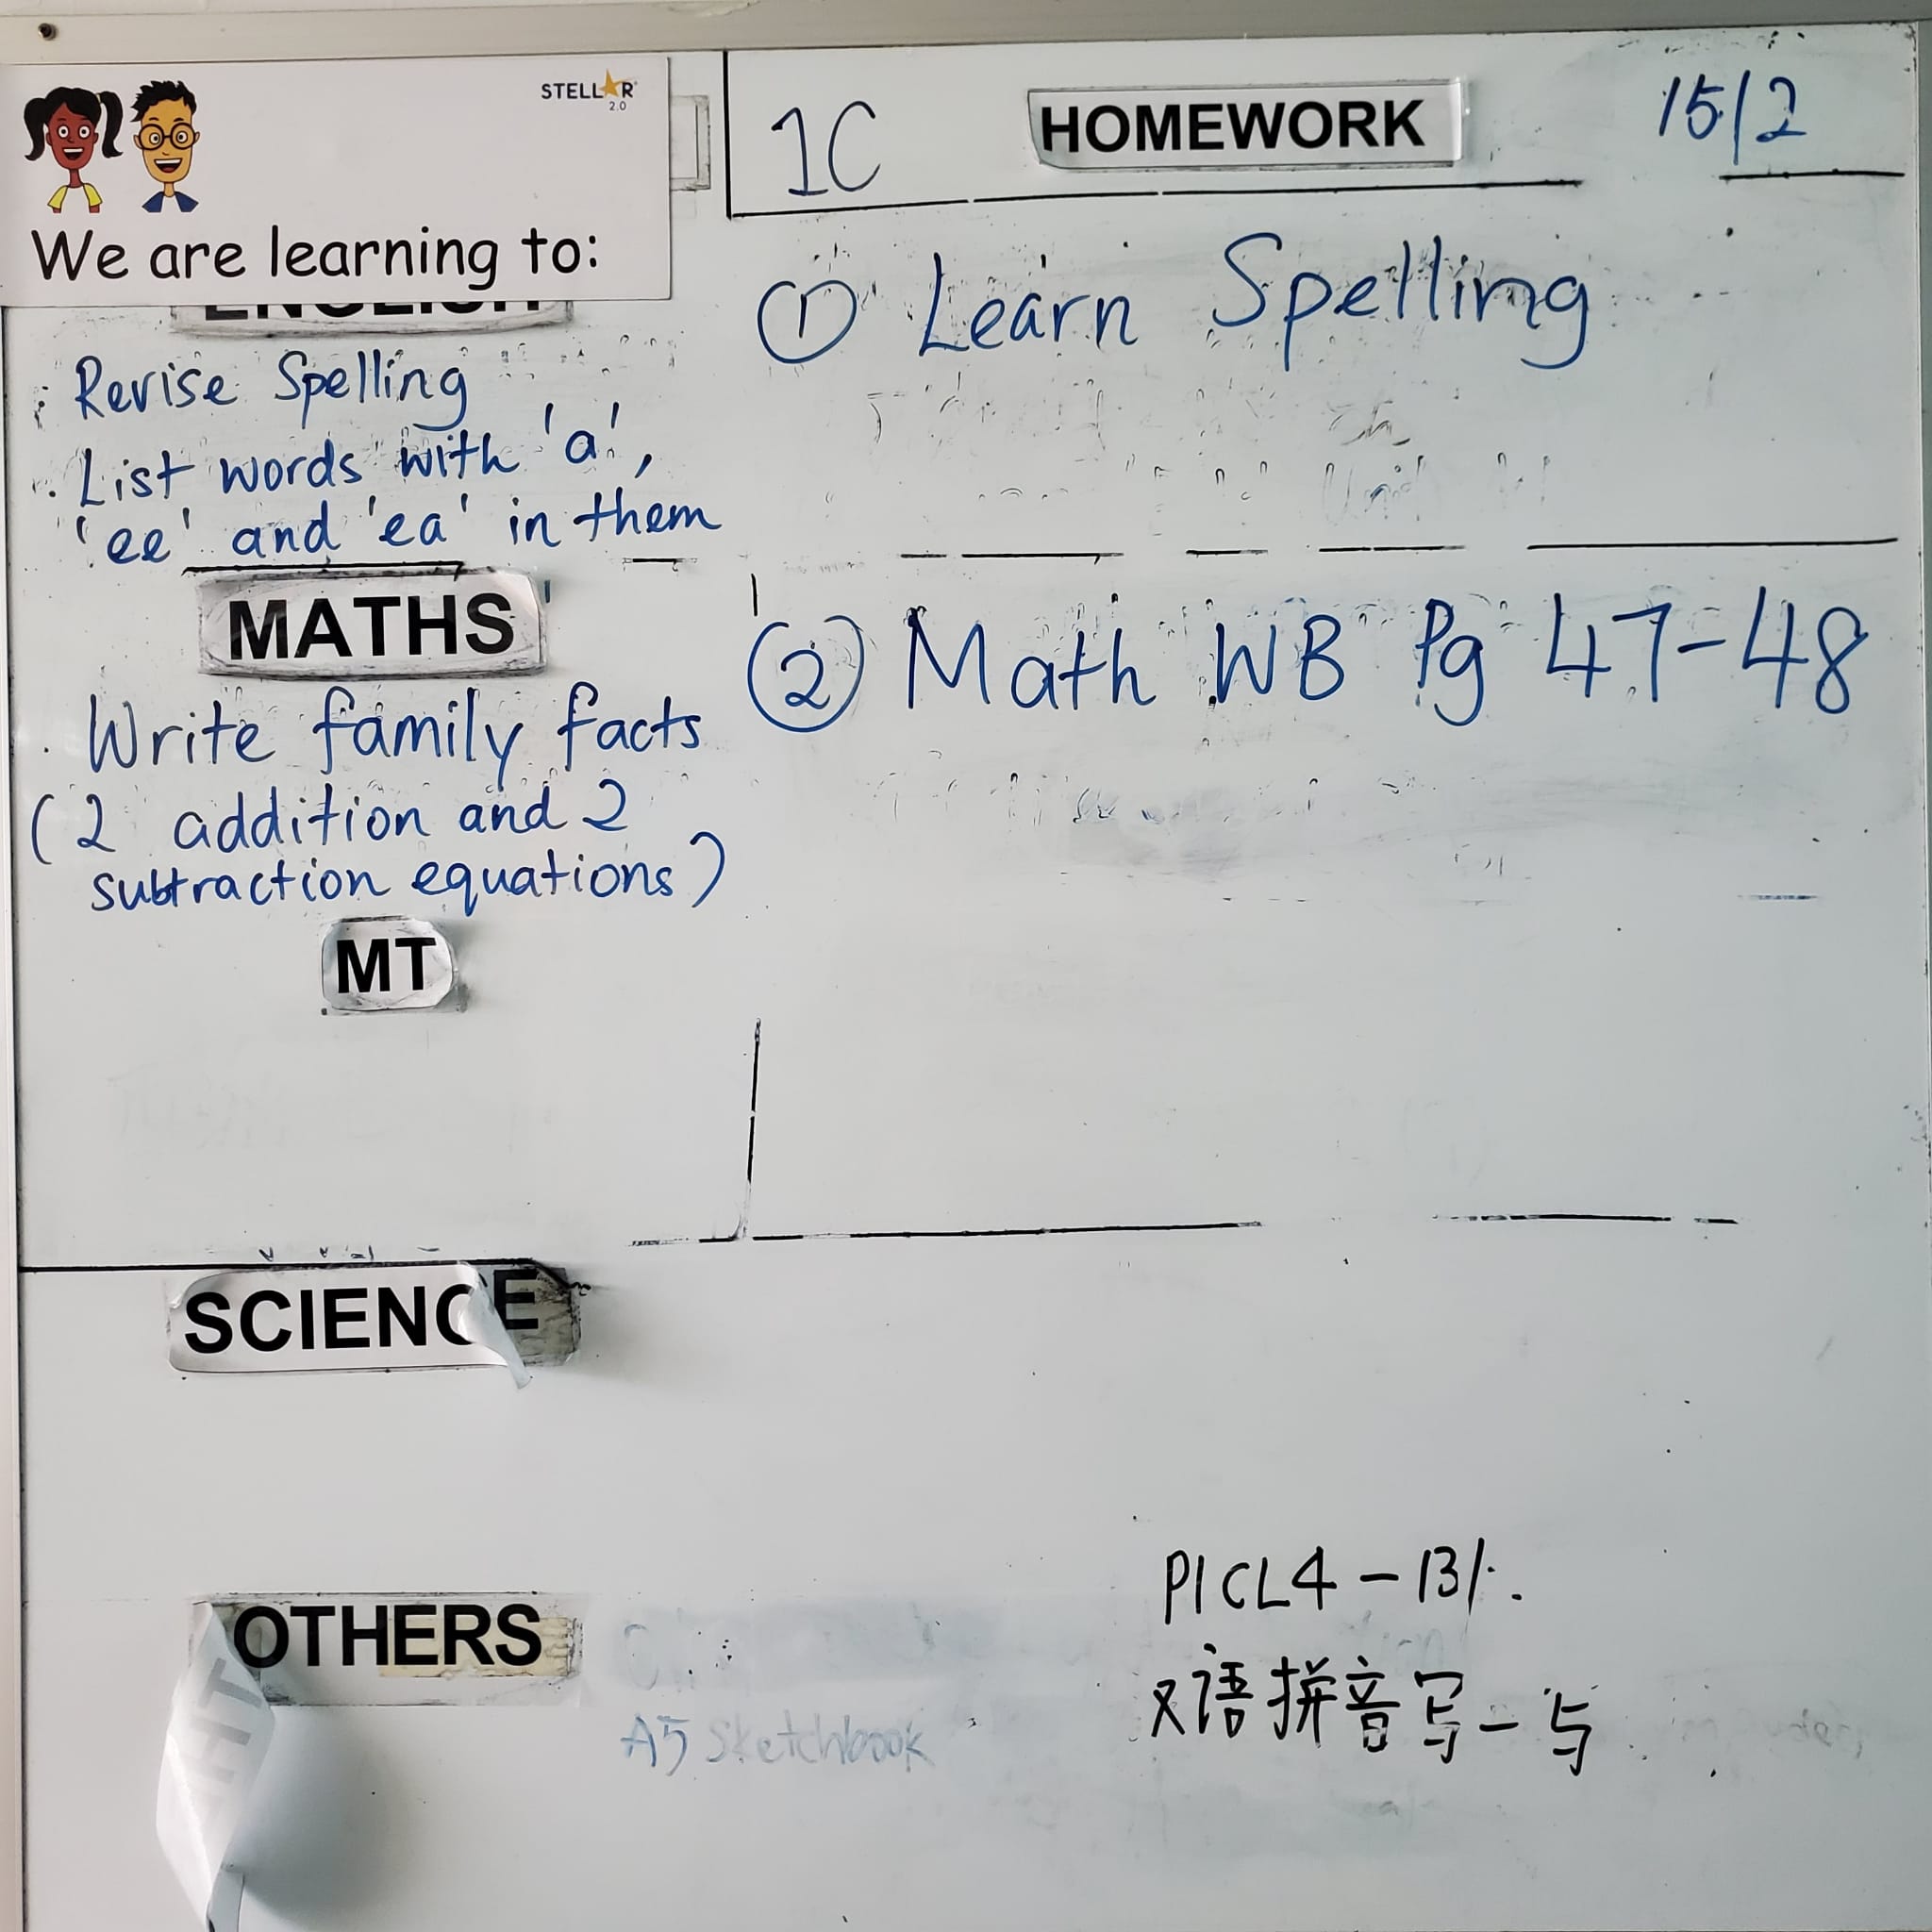 STELLAR
2.0
We are learning to:
ENGLISH
Revise Spelling
List words with 'a',
'ee' and 'ea' in them
MATHS
Write family facts
(2 addition and 2
subtraction equations)
MT
SCIENCE
OTHERS
A5 Sketchbook
1C
HOMEWORK
15/2
① Learn Spelling
② Math WB Pg 47-48
P1CL4 - 13/
语拼音写一